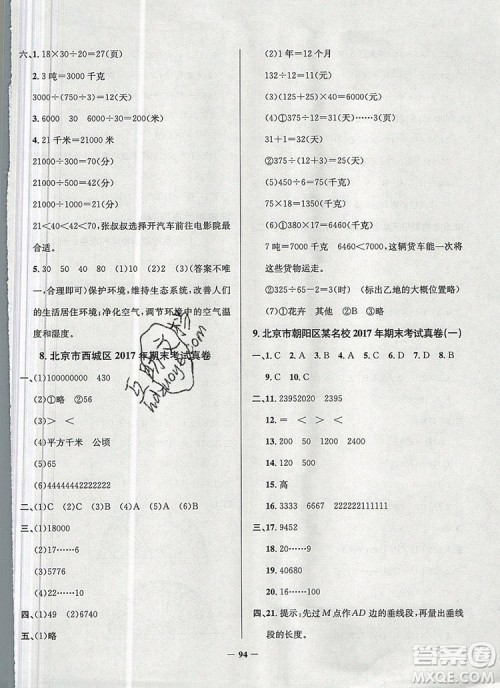 六、1. 18×30÷20=27(页)
2. 3吨=3000千克
3000÷(750÷3)=12(天)
3. 6000 30 6000÷30=200
4. 21千米=21000米
21000÷300=70(分)
21000÷500=42(分)
21000÷1000=21(分)
21<40<42<70,张叔叔选择开汽车前往电影院最
合适。
5. 30 50 40 80 (1)(2)(3)(答案不唯
一,合理即可)保护环境,维持生态系统,改善人
们的生活居住环境;净化空气,调节环境中的空气温
度和湿度。
8. 北京市西城区2017年期末考试真卷
一、(1)100000000 430
(2)①略 ②56
(3)> < <
(4)平方千米 公顷
(5)65
(6)44444442222222
二、(1)C (2)C (3)A (4)B (5)A (6)B
三、(1)18000
(2)17……6
(3)20……9
四、(1)略 (2)6740
五、(1)略
(2)1年=12个月
132÷12=11(元)
(3)(125+25)×30=4500(元)
(4)①375÷12≈31(天)
31+1=32(天)
②375÷(12+13)=15(天)
(5)380×15=5700(千克)
(6)(125+45)×38=6460(千克)
7吨=7000千克 6460<7000,这辆货车能一次将
这些货物运走。
(7)①380×17=6460(千米)
②325÷65=5(时)
(8)①花卉 其他 ②略(标出乙地的大概位置)
③260
9. 北京市朝阳区某名校2017年期末考试真卷(一)
一、1. C 2. C 3. D 4. C 5. B 6. A
7. C 8. C 9. C 10. A
二、11. 23952020 2395
12. > < >
13. 4 120
14. 1200 200
15. 高
16. 333333×333333=111110888889
三、17. 9452
18. 20……6
19. 40680
20. 16……10
四、21. 提示:先过M点作AD边的垂线段,再量出垂线
段的长度。
94
答案圈
MXQE.COM